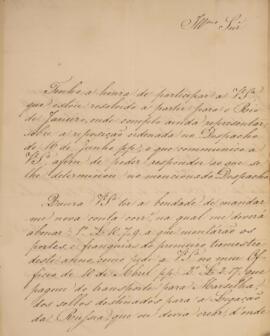 Illmo Snr
Tenho a honra de participar a V.Sa
que estou resolvido a partir para o Rio
de Janeiro, onde compete ainda representar
sobre a reposição ordenada no Despacho
de 10 de Junho pp.; o que communico a
V.Sa afim de poder responder ao que se
lhe determinou no mencionado Despacho
Queira V.Sa ter a bondade de mandar
me nova conta corr., na qual me deverá
abonar: 1º
a que montárão os
portes, e franquias do primeiro trimestre
deste anno, como pedi a V.Sa no meu Of-
ficio de 10 de Abril pp. 2º
que
paguei do transporte para Marselha
dos sellos destinados para a Legação
da Russia que ou deva crear, d'onde